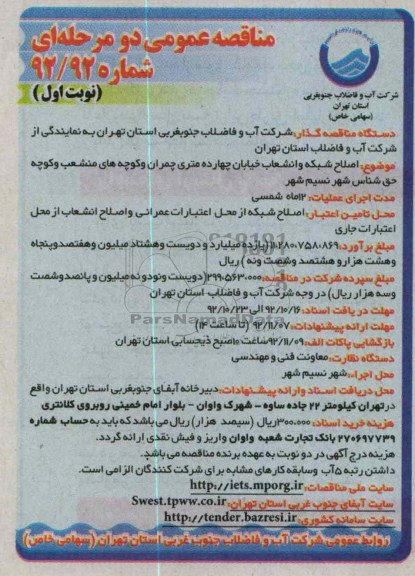 مناقصه عمومی دو مرحله‌ای
شماره ۹۲/۹۲
(نوبت اول)
شرکت آب و فاضلاب جنوبغربی
استان تهران
(سهامی خاص)
دستگاه مناقصه گذار: شرکت آب و فاضلاب جنوبغربی استان تهران به نمایندگی از
شرکت آب و فاضلاب استان تهران
موضوع: اصلاح شبکه وانشعاب خیابان چهارده متری چمران وکوچه های منشعب وکوچه
حق شناس شهر نسیم شهر
مدت اجرای عملیات: ۱۲ماه شمسی
محل تامین اعتبار: اصلاح شبکه از محل اعتبارات عمرانی و اصلاح انشعاب از محل
اعتبارات جاری
مبلغ برآورد: ۱۱،۲۸۰،۷۵۸،۸۶۹ (یازده میلیارد و دویست وهشتاد میلیون وهفتصدوپنجاه
وهشت هزار و هشتصد وشصت ونه ) ریال
مبلغ سپرده شرکت در مناقصه: ۲۹۹،۵۶۳،۰۰۰ (دویست ونودونه میلیون و پانصدوشصت
وسه هزار ریال) در وجه شرکت آب و فاضلاب استان تهران
مهلت در یافت اسناد: ۹۲/۱۰/۱۶ الی ۹۲/۱۰/۲۳
مهلت ارائه پیشنهادات: ۹۲/۱۱/۰۷ (تا ساعت ۱۴)
بازگشایی پاکات الف: ۹۲/۱۱/۰۹ساعت ۱۰صبح ذیحسابی استان تهران
دستگاه نظارت: معاونت فنی و مهندسی
محل اجراء: شهر نسیم شهر
محل دریافت اسناد وارائه پیشنهادات: دبیرخانه آبفای جنوبغربی استان تهران واقع
درتهران کیلومتر ۲۲ جاده ساوه – شهرک واوان – بلوار امام خمینی روبروی کلانتری
هزینه خرید اسناد: ۳۰۰،۰۰۰ریال (سیصد هزار) ریال می باشد که باید به حساب شماره
۲۷۰۶۹۷۷۳۹ بانک تجارت شعبه واوان واریز و فیش نقدی ارائه گردد.
هزینه درج آگهی در دو نوبت به عهده برنده مناقصه می باشد.
داشتن رتبه ۵آب وسابقه کارهای مشابه برای شرکت کنندگان الزامی است.
سایت ملی مناقصات: http://iets.mporg.ir
سایت آبفای جنوب غربی استان تهران: Swest.tpww.co.ir
سایت سامانه کشوری: http://tender.bazresi.ir
روابط عمومی شرکت آب و فاضلاب جنوب غربی استان تهران (سهامی خاص)
ParsNamadData